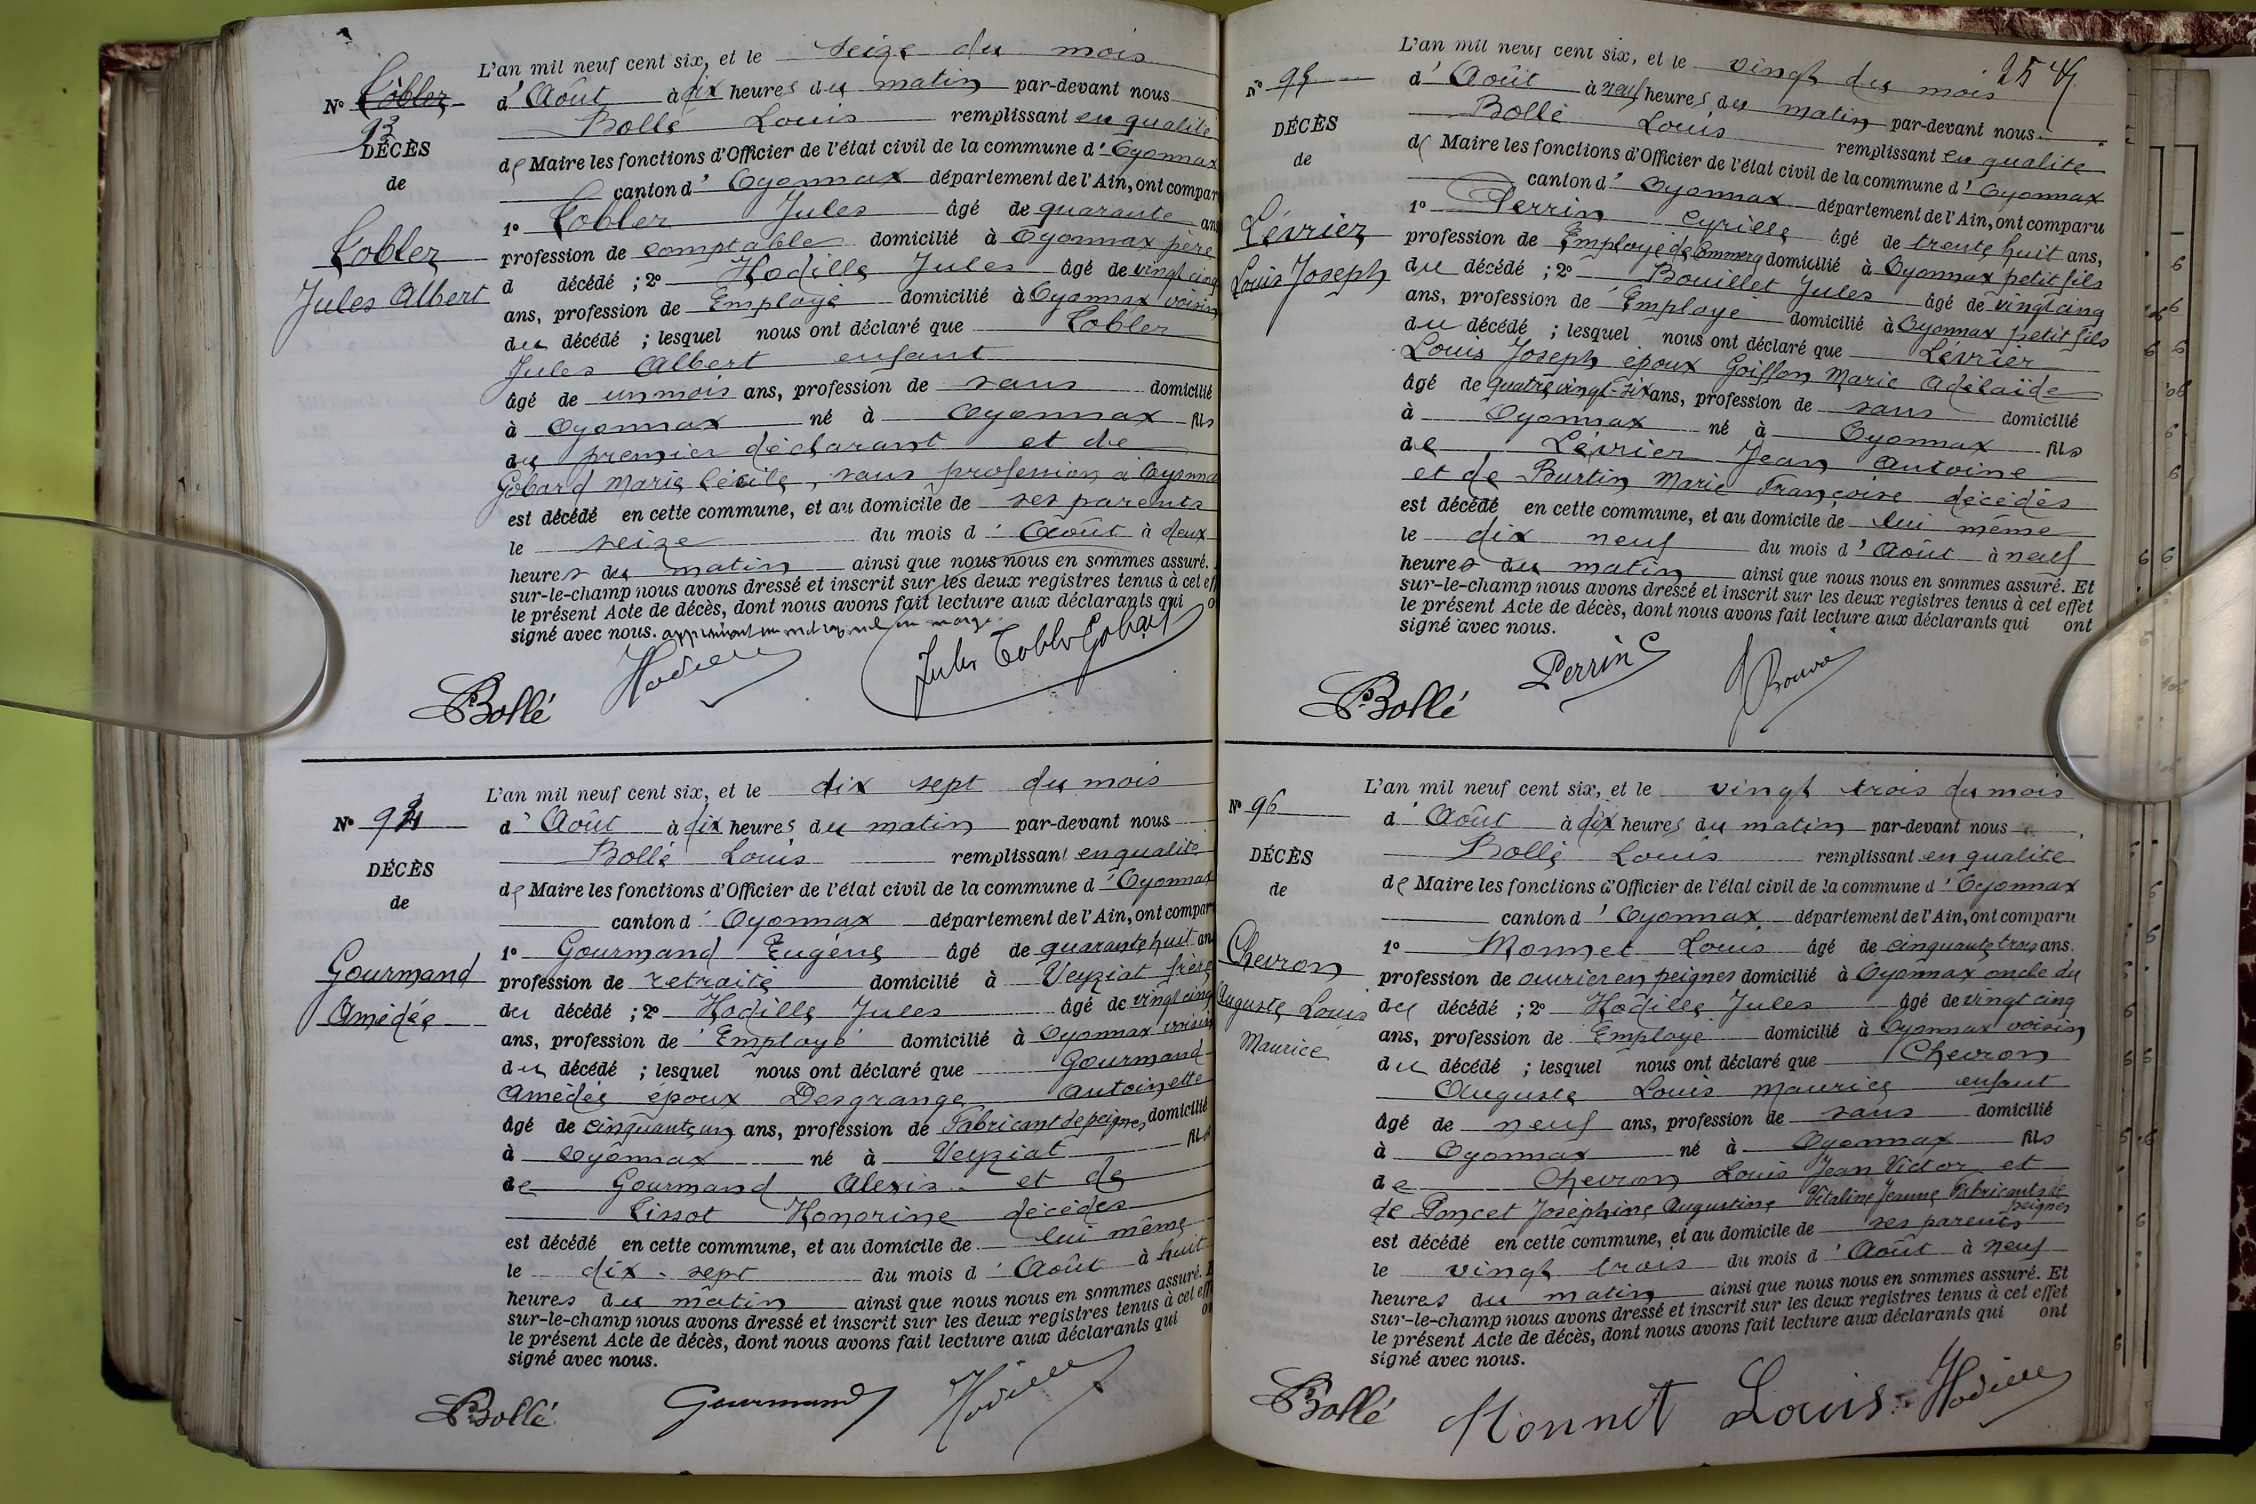 L'an mil neuf cent six, et le seize du mois
N° Tobler
93
d'Août à dix heures du matin par-devant nous
Bollé Louis remplissant en qualité
DÉCÈS
de
de Maire les fonctions d'Officier de l'état civil de la commune d'Oyonnax
canton d'Oyonnax département de l'Ain, ont compar
Tobler
Jules Albert
1° Tobler Jules âgé de quarante ans
profession de comptable domicilié à Oyonnax père
d décédé ; 2° Hodille Jules âgé de vingt cinq
ans, profession de Employé domicilié à Oyonnax voisin
du décédé ; lesquel nous ont déclaré que Tobler
Jules Albert enfant
âgé de un mois ans, profession de sans domicilié
à Oyonnax né à Oyonnax fils
du premier déclarant et de
Gobard Marie Cécile, sans profession à Oyonna
est décédé en cette commune, et au domicile de ses parents
le seize du mois d'Août à deux
heures du matin ainsi que nous nous en sommes assuré.
sur-le-champ nous avons dressé et inscrit sur les deux registres tenus à cet eff
le présent Acte de décès, dont nous avons fait lecture aux déclarants qui o
signé avec nous. approuvant un mot rayé nul en marge.
Bollé Hodille Jules Tobler Gobard
L'an mil neuf cent six, et le dix sept du mois
N° 94
d'Août à dix heures du matin par-devant nous
Bollé Louis remplissant en qualité
DÉCÈS
de
de Maire les fonctions d'Officier de l'état civil de la commune d'Oyonnax
canton d'Oyonnax département de l'Ain, ont compar
Gourmand
Amédée
1° Gourmand Eugène âgé de quarante huit an
profession de retraité domicilié à Veyziat frère
du décédé ; 2° Hodille Jules âgé de vingt cinq
ans, profession de Employé domicilié à Oyonnax voisin
du décédé ; lesquel nous ont déclaré que Gourmand
Amédée époux Desgrange Antoinette
âgé de cinquante un ans, profession de Fabricant de peignes domicilié
à Oyonnax né à Veyziat fils
de Gourmand Alexis et de
Lissot Honorine décédés
est décédé en cette commune, et au domicile de lui même
le dix-sept du mois d'Août à huit
heures du matin ainsi que nous nous en sommes assuré. E
sur-le-champ nous avons dressé et inscrit sur les deux registres tenus à cet eff
le présent Acte de décès, dont nous avons fait lecture aux déclarants qui on
signé avec nous.
Bollé Gourmand Hodille
L'an mil neuf cent six, et le vingt du mois
25
N° 95
d'Août à neuf heures du matin par-devant nous
Bollé Louis remplissant en qualité
DÉCÈS
de
de Maire les fonctions d'Officier de l'état civil de la commune d'Oyonnax
canton d'Oyonnax département de l'Ain, ont comparu
Lévrier
Louis Joseph
1° Perrin Cyrille âgé de trente huit ans,
profession de Employé de Commerce domicilié à Oyonnax petit fils
du décédé ; 2° Bouillet Jules âgé de vingt cinq
ans, profession de Employé domicilié à Oyonnax petit fils
du décédé ; lesquel nous ont déclaré que Lévrier
Louis Joseph époux Goiffon Marie Adélaïde
âgé de quatre vingt-six ans, profession de sans domicilié
à Oyonnax né à Oyonnax fils
de Lévrier Jean Antoine
et de Burtin Marie Françoise décédés
est décédé en cette commune, et au domicile de lui même
le dix neuf du mois d'Août à neuf
heures du matin ainsi que nous nous en sommes assuré. Et
sur-le-champ nous avons dressé et inscrit sur les deux registres tenus à cet effet
le présent Acte de décès, dont nous avons fait lecture aux déclarants qui ont
signé avec nous.
Bollé Perrin C
L'an mil neuf cent six, et le vingt trois du mois
N° 96
d'Août à dix heures du matin par-devant nous
Bollé Louis remplissant en qualité
DÉCÈS
de
de Maire les fonctions d'Officier de l'état civil de la commune d'Oyonnax
canton d'Oyonnax département de l'Ain, ont comparu
Chevron
Auguste Louis
Maurice
1° Monnet Louis âgé de cinquante trois ans.
profession de ouvrier en peignes domicilié à Oyonnax oncle du
du décédé ; 2° Hodille Jules âgé de vingt cinq
ans, profession de Employé domicilié à Oyonnax voisin
du décédé ; lesquel nous ont déclaré que Chevron
Auguste Louis Maurice enfant
âgé de neuf ans, profession de sans domicilié
à Oyonnax né à Oyonnax fils
de Chevron Louis Jean Victor et
de Poncet Joséphine Augustine Vitaline Jeanne Fabricants de
peignes
est décédé en cette commune, et au domicile de ses parents
le vingt trois du mois d'Août à neuf
heures du matin ainsi que nous nous en sommes assuré. Et
sur-le-champ nous avons dressé et inscrit sur les deux registres tenus à cet effet
le présent Acte de décès, dont nous avons fait lecture aux déclarants qui ont
signé avec nous.
Bollé Monnet Louis Hodille